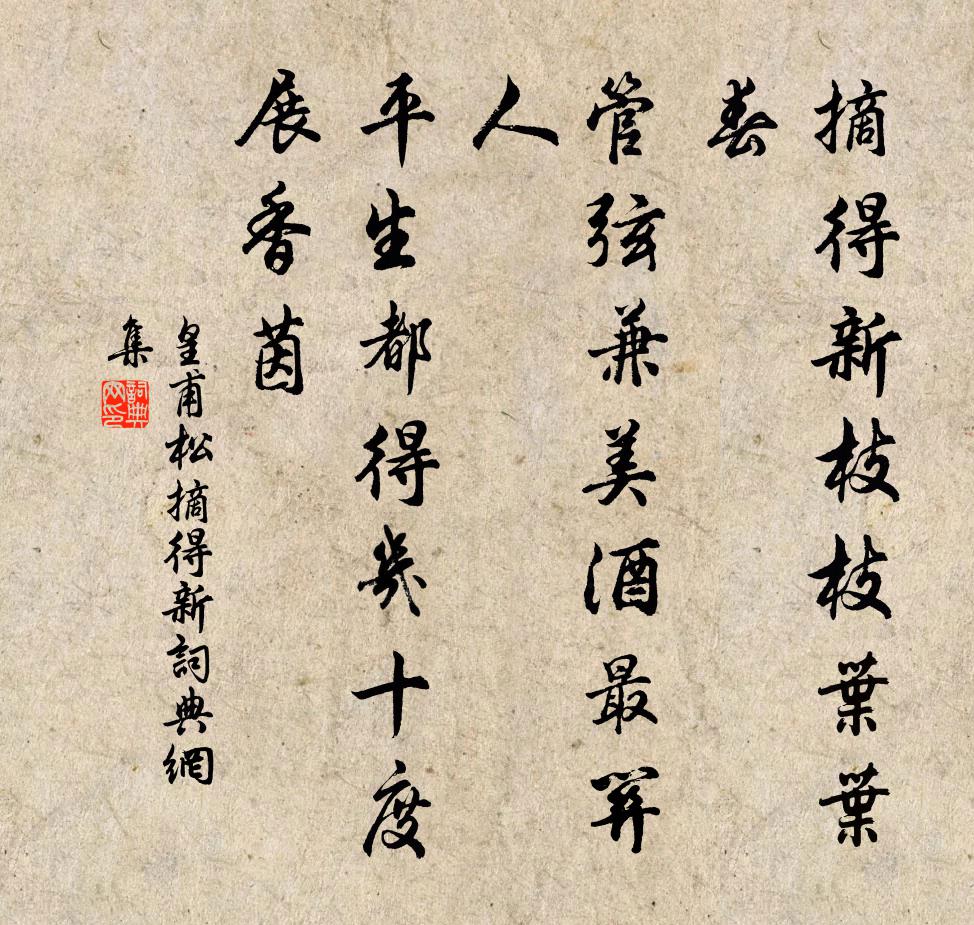 摘得新枝枝葉葉
春
管弦兼美酒最關
人
平生都得幾十度
展香茵
皇甫松摘得新詞典網
集
詞典
网印